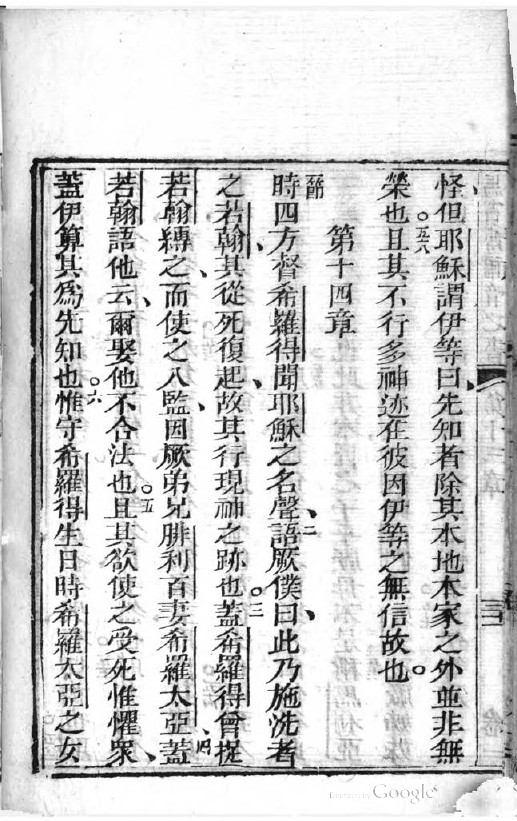 怪但耶穌謂伊等曰先知者除其本地本家之外並非無
榮也五八且其不行多神迹在彼因伊等之無信故也
第十四章
節
時四方督希羅得聞耶穌之名聲二語厥僕曰此乃施洗者
之若翰其從死復起故其行現神之跡也三蓋希羅得曾捉
若翰縛之而使之入監因厥弟兄腓利百妻希羅太亞四蓋
若翰語他云爾娶他不合法也五且其欲使之受死惟懼眾
蓋伊算其為先知也六惟守希羅得生日時希羅太亞之女
Google